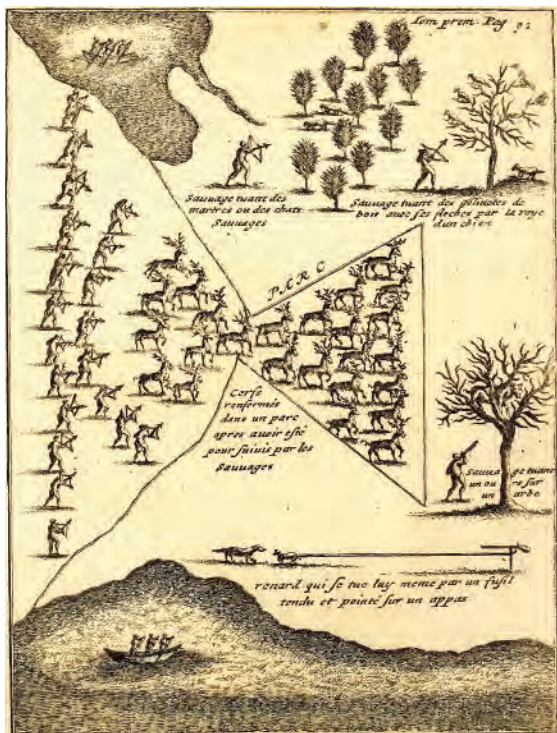 Tom prem. Pag 91
Sauvage tuant des
martres ou des chats
Sauvages
Sauvage tuant des gelinotes de
bois avec ses fleches par la voye
dun chien
PARC
Cerfs
renfermés
dans un parc
apres avoir esté
pour suivis par les
Sauvages
Sauvage tuant
un ou rs sur
un arbe
renard qui se tue luy meme par un fusil
tendu et pointé sur un appas